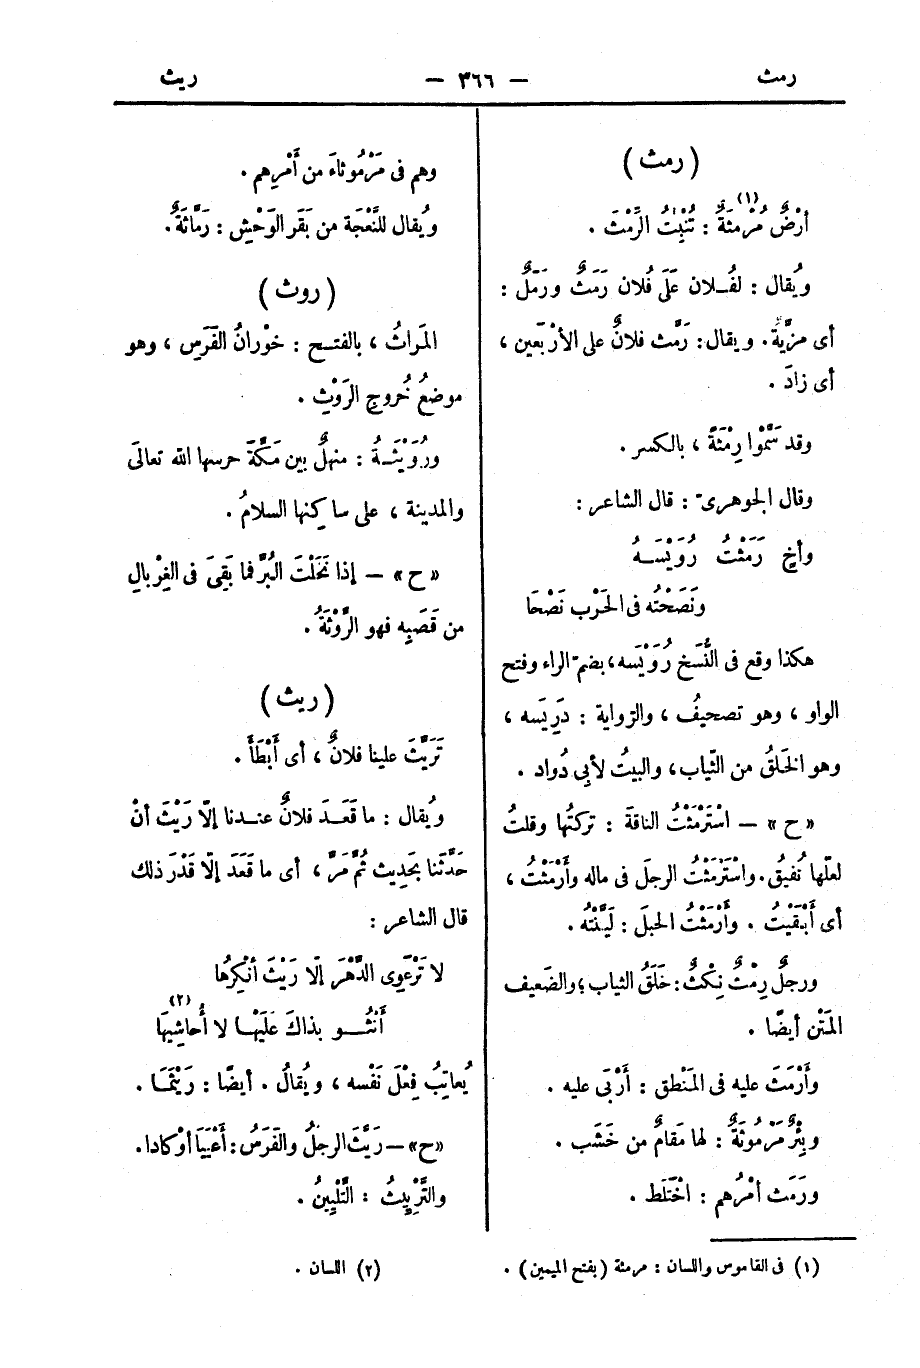 رمث — ٣٦٦ — ريث
(رمث)
أرْضٌ مُرْمِثَةٌ (١) : تُنْبِتُ الرِّمْثَ .
ويُقال : لفُـلان عَلَى فُلان رَمَثٌ ورَمَلٌ :
أى مزِيَّة . ويقال : رَمَّث فلانٌ على الأرْبَعين ،
أى زادَ .
وقد سَمَّوْا رِمْثَةً ، بالكسر .
وقال الجوهرىّ : قال الشاعر :
وأخٍ رَمَثْتُ رُوَيْسَـهُ
ونَصَحْتُه فى الحَرْب نَصْحَا
هكذا وقع فى النُّسَخ رُوَيْسه ، بضمّ الراء وفتح
الواو ، وهو تصحيفُ ، والرّواية : دَرِيسَه ،
وهو الخَلَقُ من الثّياب ، والبيتُ لأبِى دُواد .
«ح» — اسْتَرْمَثْتُ الناقة : تركتُها وقلتُ
لعلّها تُفيقُ . واسْتَرْمَثْتُ الرجلَ فى ماله وأَرْمَثْتُ ،
أى أَبْقَيتُ . وأَرْمَثْتُ الحبلَ : لَيَّنْتُه .
ورجلٌ رِمْثٌ نِكْثٌ : خَلَقُ الثياب ؛ والضَعيف
المَتْن أيضًا .
وأَرْمَثَ عليه فى المَنْطِق : أَرْبَى عليه .
وبِئْرٌ مَرْمُوثَةٌ : لها مَقامٌ من خَشَب .
ورَمَث أمْرُهم : اخْتَلَط .
وهم فى مَرْمُوثاءَ من أَمْرِهم .
ويُقال للنَّعْجَة من بَقَر الوَحْشِ : رَمَّاثَةٌ .
(روث)
المَرَاثُ ، بالفتـح : خَوْرانُ الفَرَسِ ، وهو
موضعُ خُروجِ الرَوْثِ .
ورُوَيْثَـةُ : منهلٌ بين مَكَّةَ حرسها الله تعالَى
والمدينة ، على ساكنِها السلامُ .
«ح» — إذا نَخَلْتَ البُرَّ فما بَقِىَ فى الغِرْبالِ
من قَصَبِه فهو الرَّوْثَةُ .
(ريث)
تَرَيَّثَ علينا فلانٌ ، أى أَبْطَأَ .
ويُقال : ما قَعَـدَ فلانٌ عنـدنا إلّا رَيْثَ أنْ
حَدَّثَنا بحَدِيث ثُمَّ مَرَّ ، أى ما قَعَدَ إلّا قَدْرَ ذلك
قال الشاعر :
لا تَرْعَوِى الدَّهْرَ إلّا رَيْثَ أنْكِرُها
أَنْثُـو بذاكَ عَلَيْهَـا لا أُحاشِيهَا (٢)
يُعاتِبُ فِعْلَ نَفْسه ، ويُقالُ . أيضًا : رَيْثَمَـا .
«ح» — رَيَّثَ الرجلُ والفَرَسُ : أعْيَيَا أوْ كادا .
والتَّرْيِيثُ : التَّلْيِينُ .
(١) فى القاموس واللسان : مرمثة (بفتح الميمين) .
(٢) اللسان .